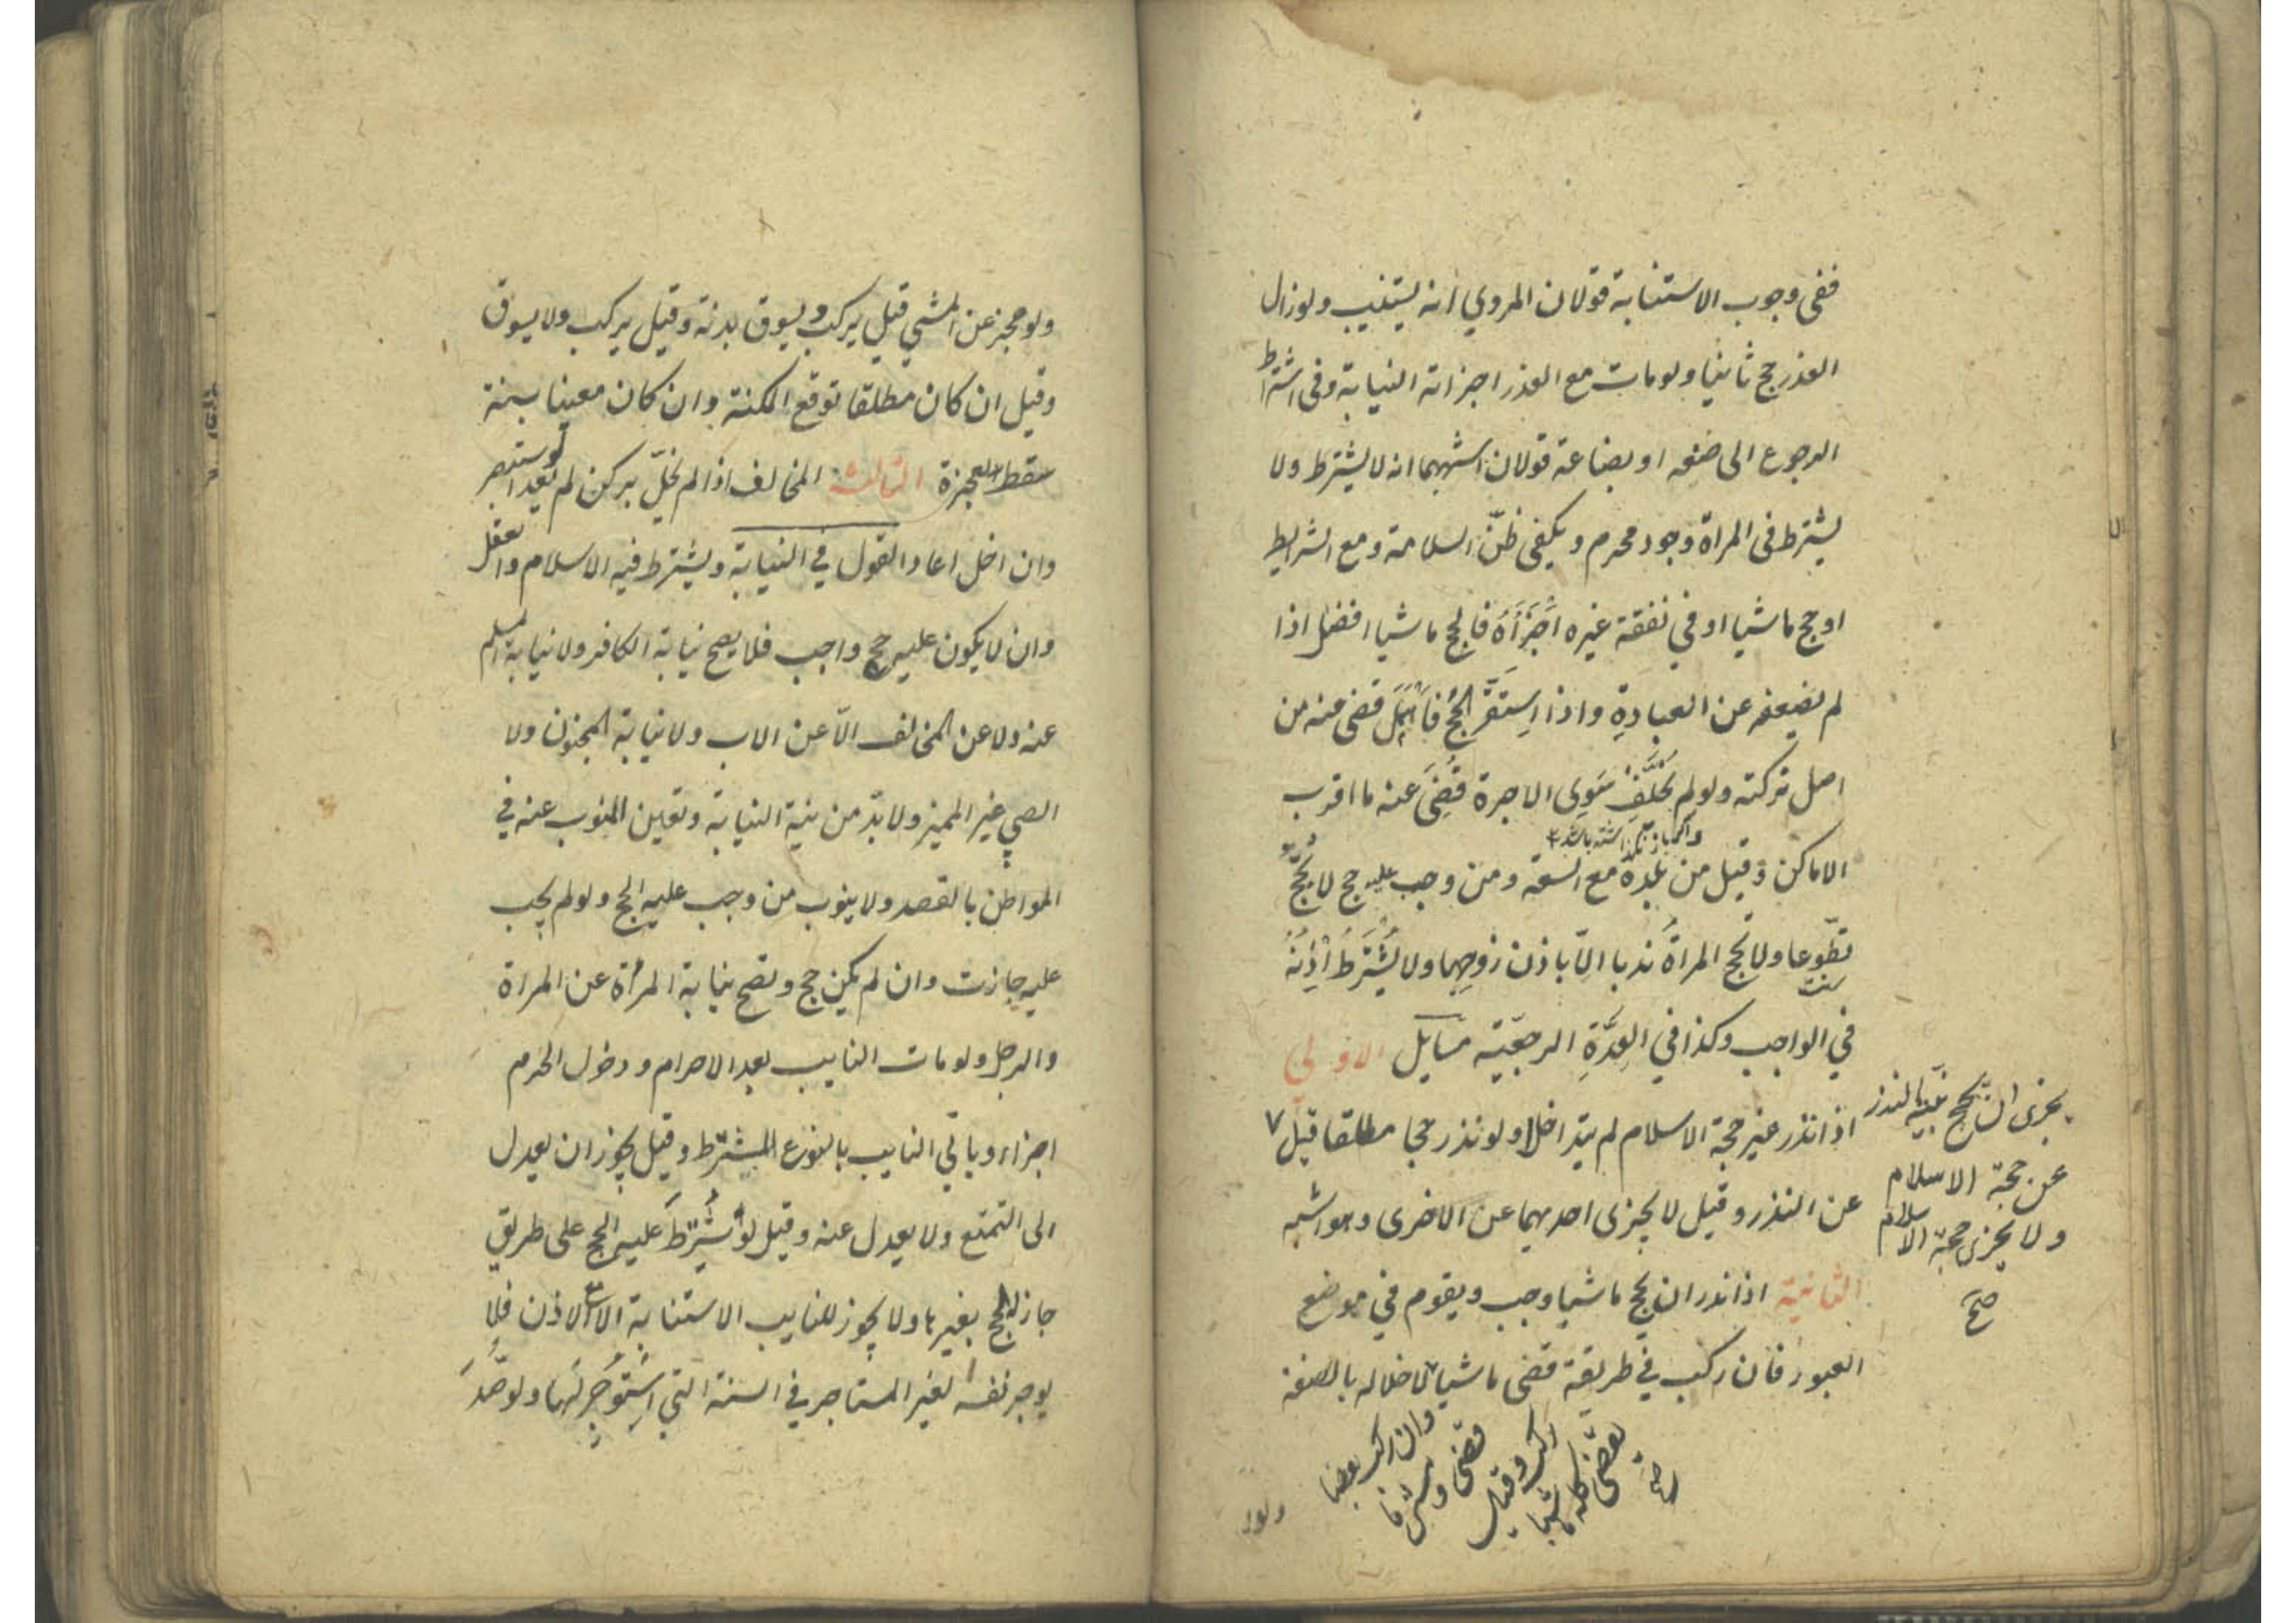 ففى وجوب الاستنابة قولان المروي انه يستنيب ولو زال
العذر حج ثانيا ولو مات مع العذر اجزاته النيابة وفى اشتراط
الرجوع الى صنعه او بضاعة قولان اشبههما انه لا يشترط ولا
يشترط فى المراة وجود محرم ويكفى ظنّ السلامة ومع الشرايط
او حج ماشيا او في نفقة غيره اَجْزَأهُ فالحج ماشيا افضل اذا
لم يضعفه عن العبادةِ واذا اِستَقَرَّ الحجُ فَاَهْمَلَ قضى عنه من
اصل تركته ولو لم يُخَلِّفْ سَوِى الاجرة قُضِىَ عنه ما اقرب
واكر باز نكذاشته باشد
الاماكن وقيل من بلدهٖ مع السعة ومن وجب عليه حج لا يَحُجُّ
تطّوعا ولا تحج المراةُ ندبا الّا باذن زوجِهِا ولا يُشْتَرَطُ اذِنُهُ
سنت
في الواجب وكذا في العِدَّةِ الرجعيّة مسايل الاولى
اذا نذر غير حجة الاسلام لم يتداخلا ولو نذر حجا مطلقا قيل ٧
يجزى ان حج بنيّة النذر
عن حجة الاسلام
ولا يجزى حجة الاسلام
صح
عن النذر وقيل لا يجزى احديهما عن الاخرى وهو اشبه
الثانية اذا نذر ان يحج ماشيا وجب ويقوم في موضع
العبور فان ركب في طريقة قضى ماشيا لاخلاله بالصفة
وان ركب بعضا
قضى ومشى ما
ركب وقيل
يقضى كله ماشيا
صح
ولو
ولو عجز عن المشي قيل يركب ويسوق بدنة وقيل يركب ولا يسوق
وقيل ان كان مطلقا توقع المكنة وان كان معينا بسنة
سقط لعجزه الثالثة المخالف اذا لم يخلّ بركن لم يعد لو استبصر
وان اخل اعاد القول في النيابة ويشترط فيه الاسلام والعقل
وان لا يكون عليه حج واجب فلا يصح نيابة الكافر ولا نيابة المسلم
عنه ولا عن المخالف الّا عن الاب ولا نيابة المجنون ولا
الصبي غير المميز ولا بدّ من نية النيابة وتعين المنوب عنه في
المواطن بالقصد ولا ينوب من وجب عليه الحج ولو لم يجب
عليه جازت وان لم يكن حج وتصح نيابة المرأة عن المراة
والرجل ولو مات النايب بعد الاحرام ودخول الحرم
اجزاء وياتي النايب بالنوع المشترط وقيل يجوز ان يعدل
الى التمتع ولا يعدل عنه وقيل لو شُرِطَ عليه الحج على طريق
جاز الحج بغيرها ولا يجوز للنايب الاستنابة الا مع الاذن فلا
يوجر نفسه لغير المستاجر في السنة التي اُسْتُوجِرَ لها ولو صُدَّ